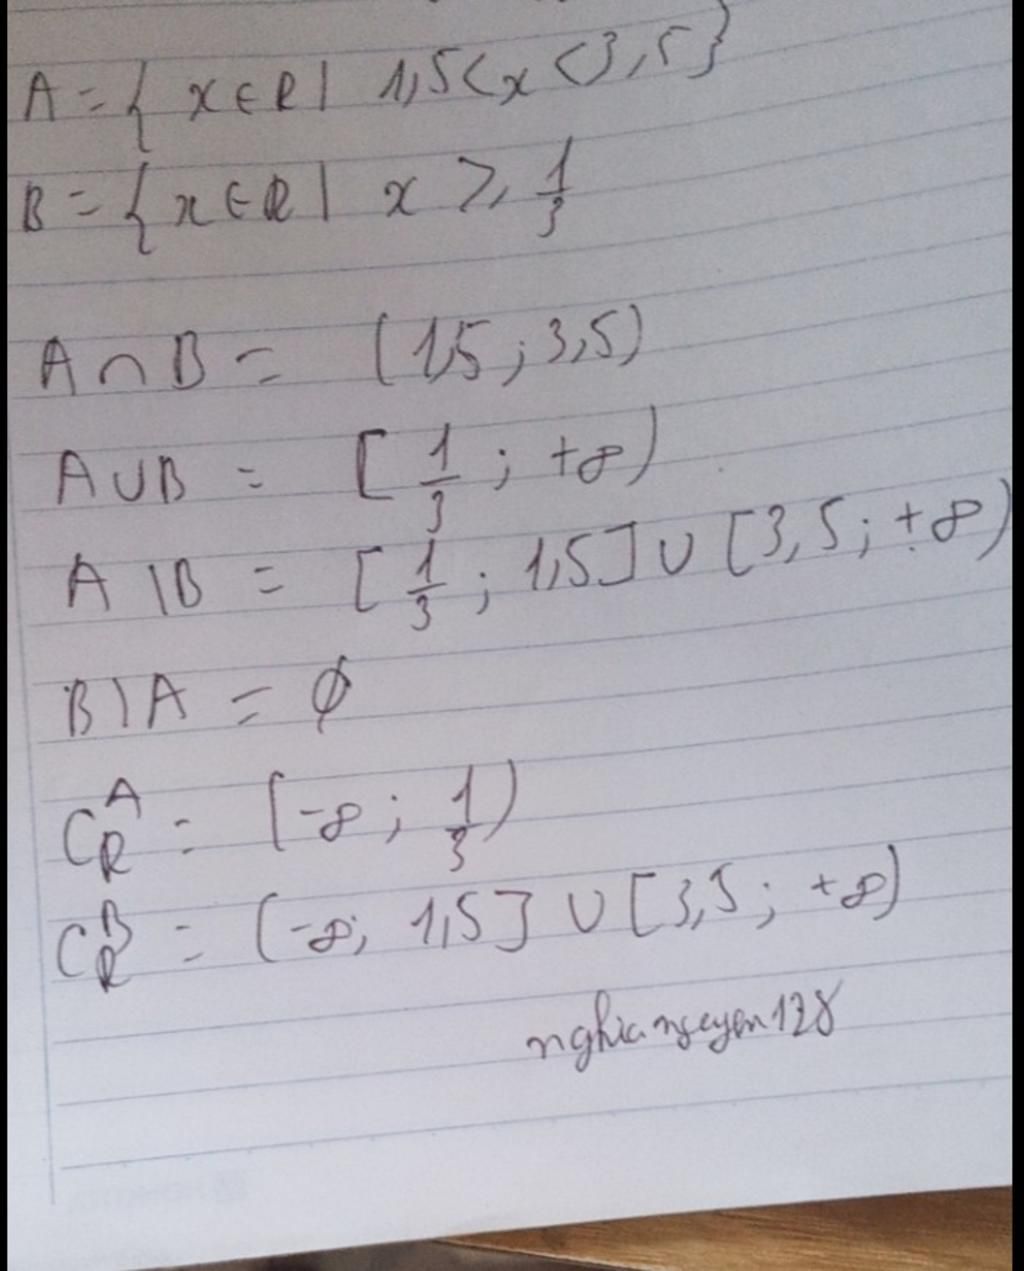 A = { x ∈ R | 1,5 < x < 3,5 }
B = { x ∈ R | x ≥ 1/3
A ∩ B = (1,5 ; 3,5)
A ∪ B = [ 1/3 ; +∞)
A \ B = [ 1/3 ; 1,5] ∪ [3,5 ; +∞)
B \ A = ∅
C_R^A = (-∞ ; 1/3)
C_R^B = (-∞ ; 1,5] ∪ [3,5 ; +∞)
nghianguyen128